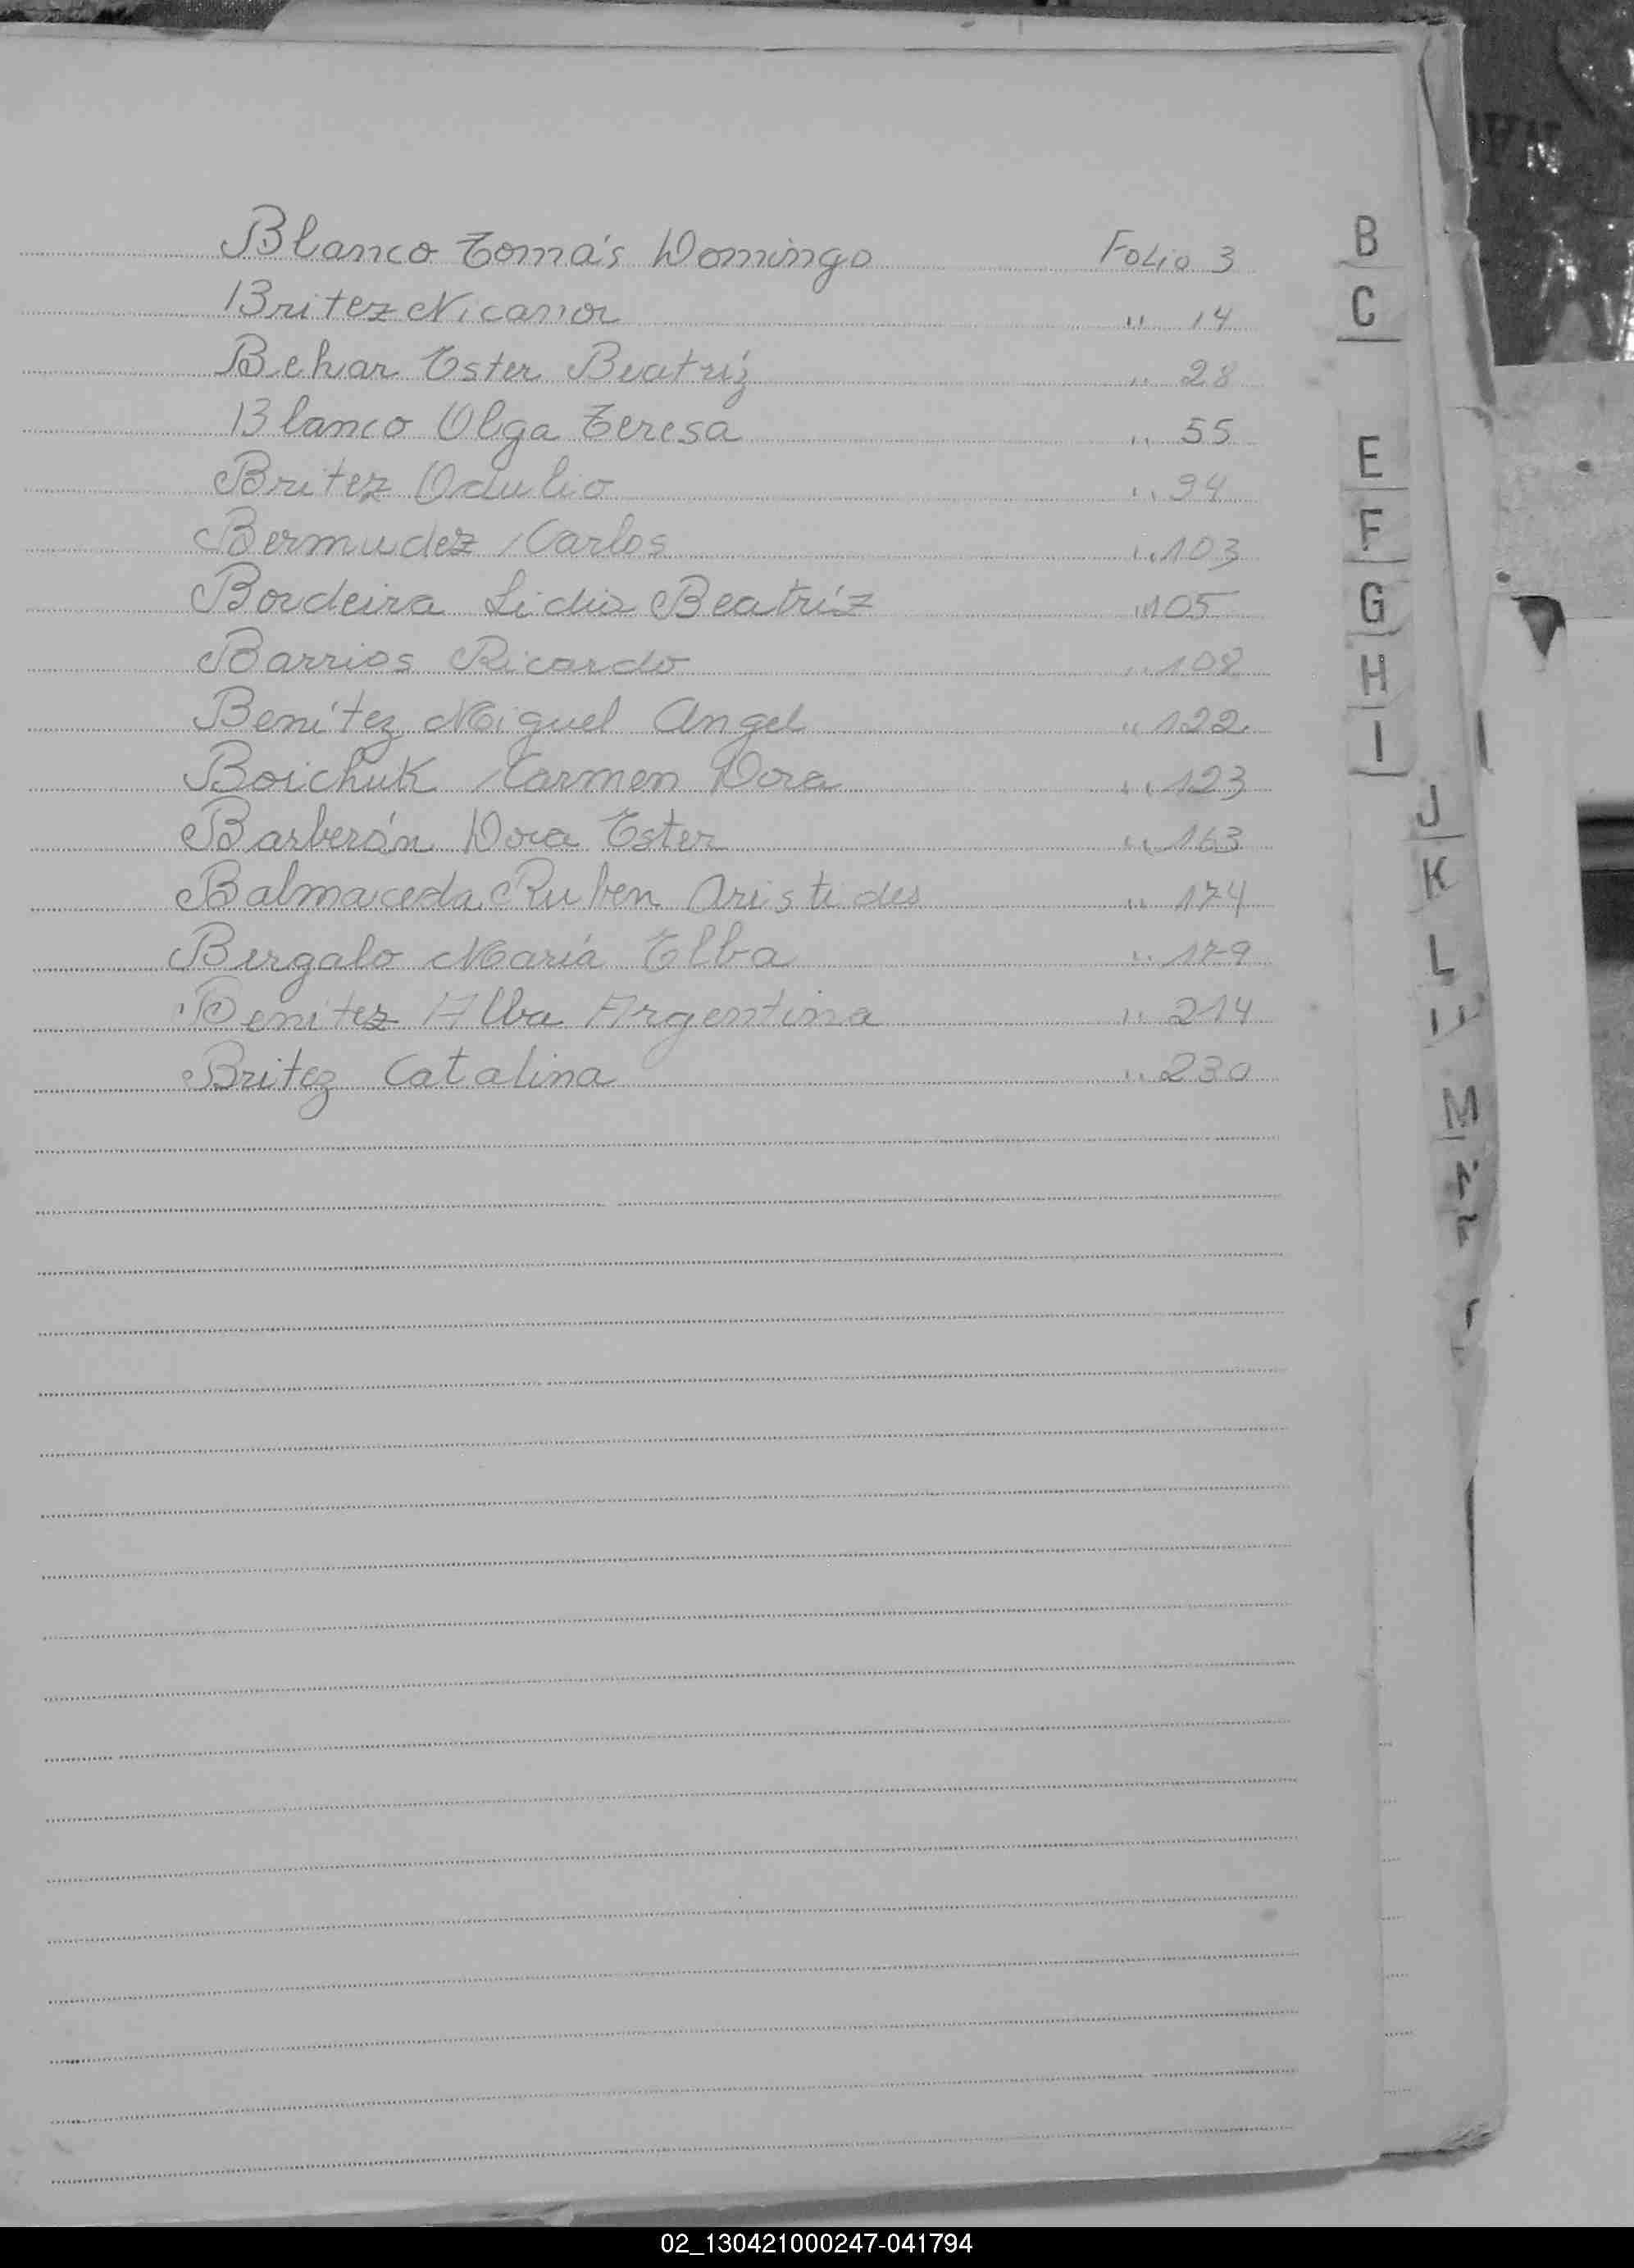 Blanco Tomás Domingo Folio 3
Britez Nicanor " 14
Behar Ester Beatríz " 28
Blanco Olga Teresa " 55
Britez Odulio " 94
Bermudez Carlos " 103
Bordeira Lidia Beatríz " 105
Barrios Ricardo " 108
Benítez Miguel Angel " 122
Boichuk Carmen Dora " 123
Barberán Dora Ester " 163
Balmaceda Ruben Aristides " 174
Bergalo María Elba " 179
Benitez Alba Argentina " 214
Britez Catalina " 230
B
C
E
F
G
H
I
J
K
L
M
02_130421000247-041794